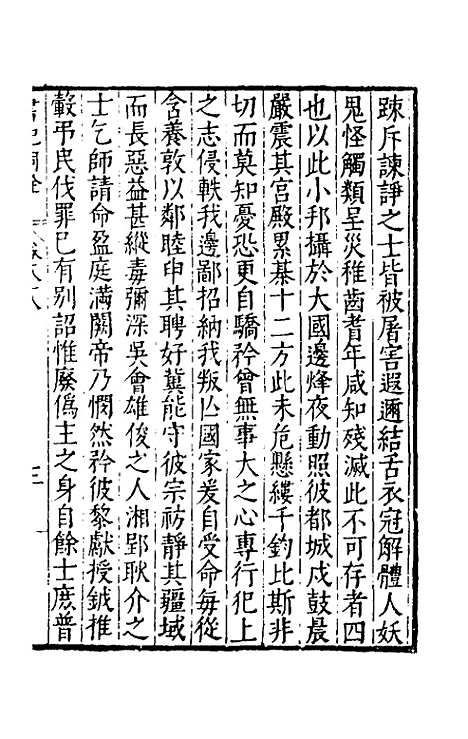 踈斥諫諍之士皆被屠害遐邇結舌衣冠解體人妖
鬼怪觸類呈災稚齒耆年咸知殘滅此不可存者四
也以此小邦攝於大國邊烽夜動照彼都城戍鼓晨
嚴震其宮殿累棊十二方此未危懸縷千鈞比斯非
切而莫知憂恐更自驕矜曾無事大之心專行犯上
之志侵軼我邊鄙招納我叛亾國家爰自受命每從
含養敦以鄰睦申其聘好冀能守彼宗祊靜其疆域
而長惡益甚縱毒彌深吳會雄俊之人湘郢耿介之
士乞師請命盈庭滿闕帝乃憫然矜彼黎獻授鉞推
轂弔民伐罪已有别詔惟廢僞主之身自餘士庶普